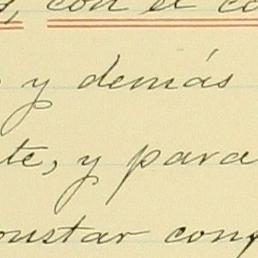 con el
y demás
te, y para
onstar con